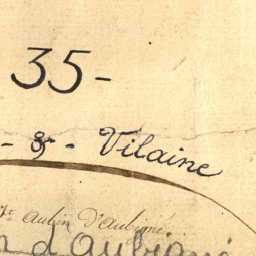 35-
- & - Vilaine
St Aubin D'Aubigné
d'Aubigné